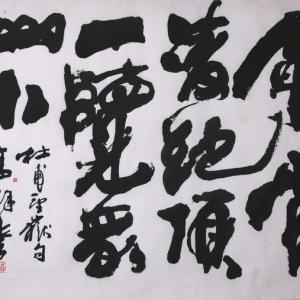 會當
凌絕頂
一覽眾
山小
杜甫望嶽句